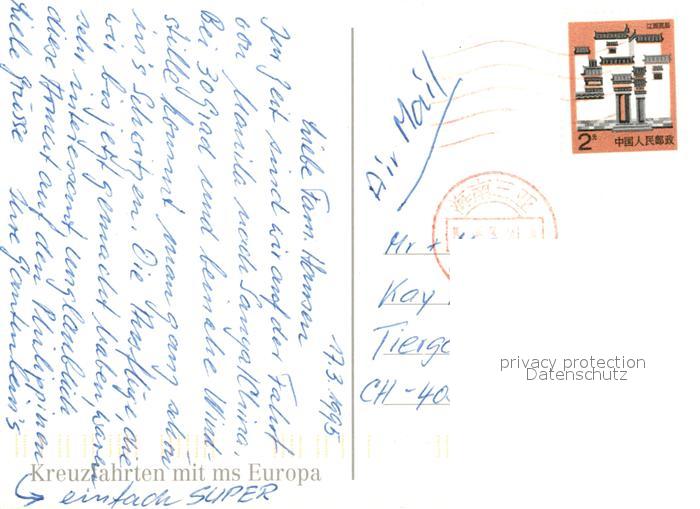 17.3.1995
Liebe Fam. Hansen
Zur Zeit sind wir auf der Fahrt
von Manila nach Sanya/China.
Bei 30 Grad und beinahe Wind-
stille kommt man ganz schön
in's Schwitzen. Die Ausflüge, die
wir bis jetzt gemacht haben, waren
sehr interessant, unglaublich
diese Armut auf den Philippinen
Viele Grüsse Ihre Gantenbein's
Kreuzfahrten mit ms Europa
einfach SUPER
Air Mail
江西民居
2元 中国人民邮政
海南三亚
Mr +
Kay
Tierga
CH-40
privacy protection
Datenschutz